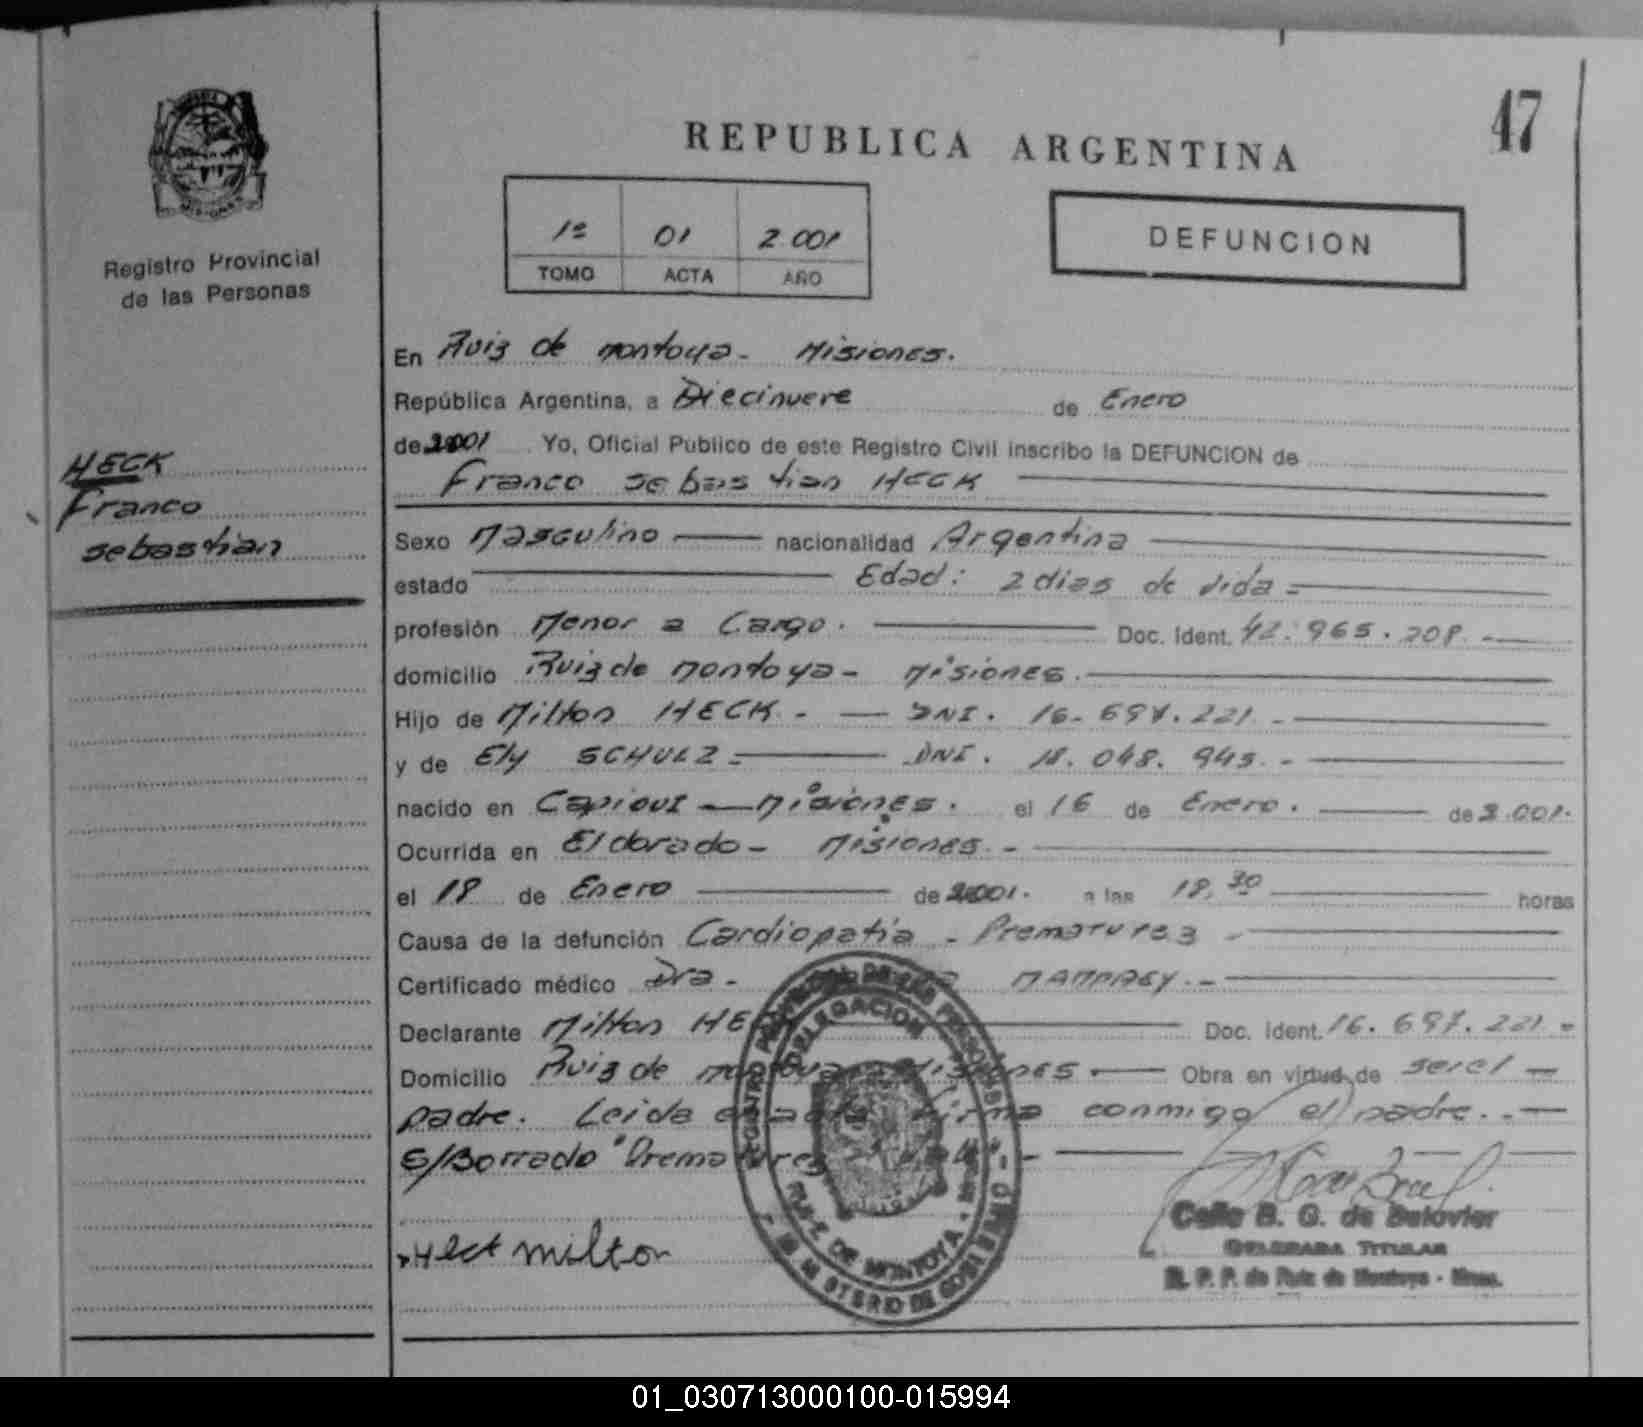 47
REPUBLICA ARGENTINA
1º 01 2.001
TOMO ACTA AÑO
DEFUNCION
MISIONES
Registro Provincial
de las Personas
HECK
Franco
Sebastian
En Ruiz de Montoya - Misiones.
República Argentina, a Diecinueve de Enero
de 2001 Yo, Oficial Público de este Registro Civil inscribo la DEFUNCION de
Franco Sebastian HECK
Sexo Masculino nacionalidad Argentina
estado Edad: 2 dias de vida
profesión Menor a Cargo. Doc. Ident. 42.965.208.-
domicilio Ruiz de Montoya - Misiones.
Hijo de Milton HECK.- DNI. 16.697.221.-
y de Ely SCHULZ DNI. 18.048.945.-
nacido en Capiovi - Misiones. el 16 de Enero. de 2.001.
Ocurrida en Eldorado - Misiones.-
el 18 de Enero de 2001. a las 18,30 horas
Causa de la defunción Cardiopatia - Prematurez -
Certificado médico Dra.
Declarante Milton HECK Doc. Ident. 16.697.221.-
Domicilio Ruiz de Montoya - Misiones. Obra en virtud de ser el
padre. Leida el acta firma conmigo el padre..-
S/Borrado "Prematurez
Heck milton
REGISTRO PROVINCIAL DE LAS PERSONAS
DELEGACION
RUIZ DE MONTOYA
MINISTERIO DE GOBIERNO
Celia B. G. de
DELEGADA TITULAR
R. P. P. de Ruiz de Montoya - Mnes.
01_030713000100-015994